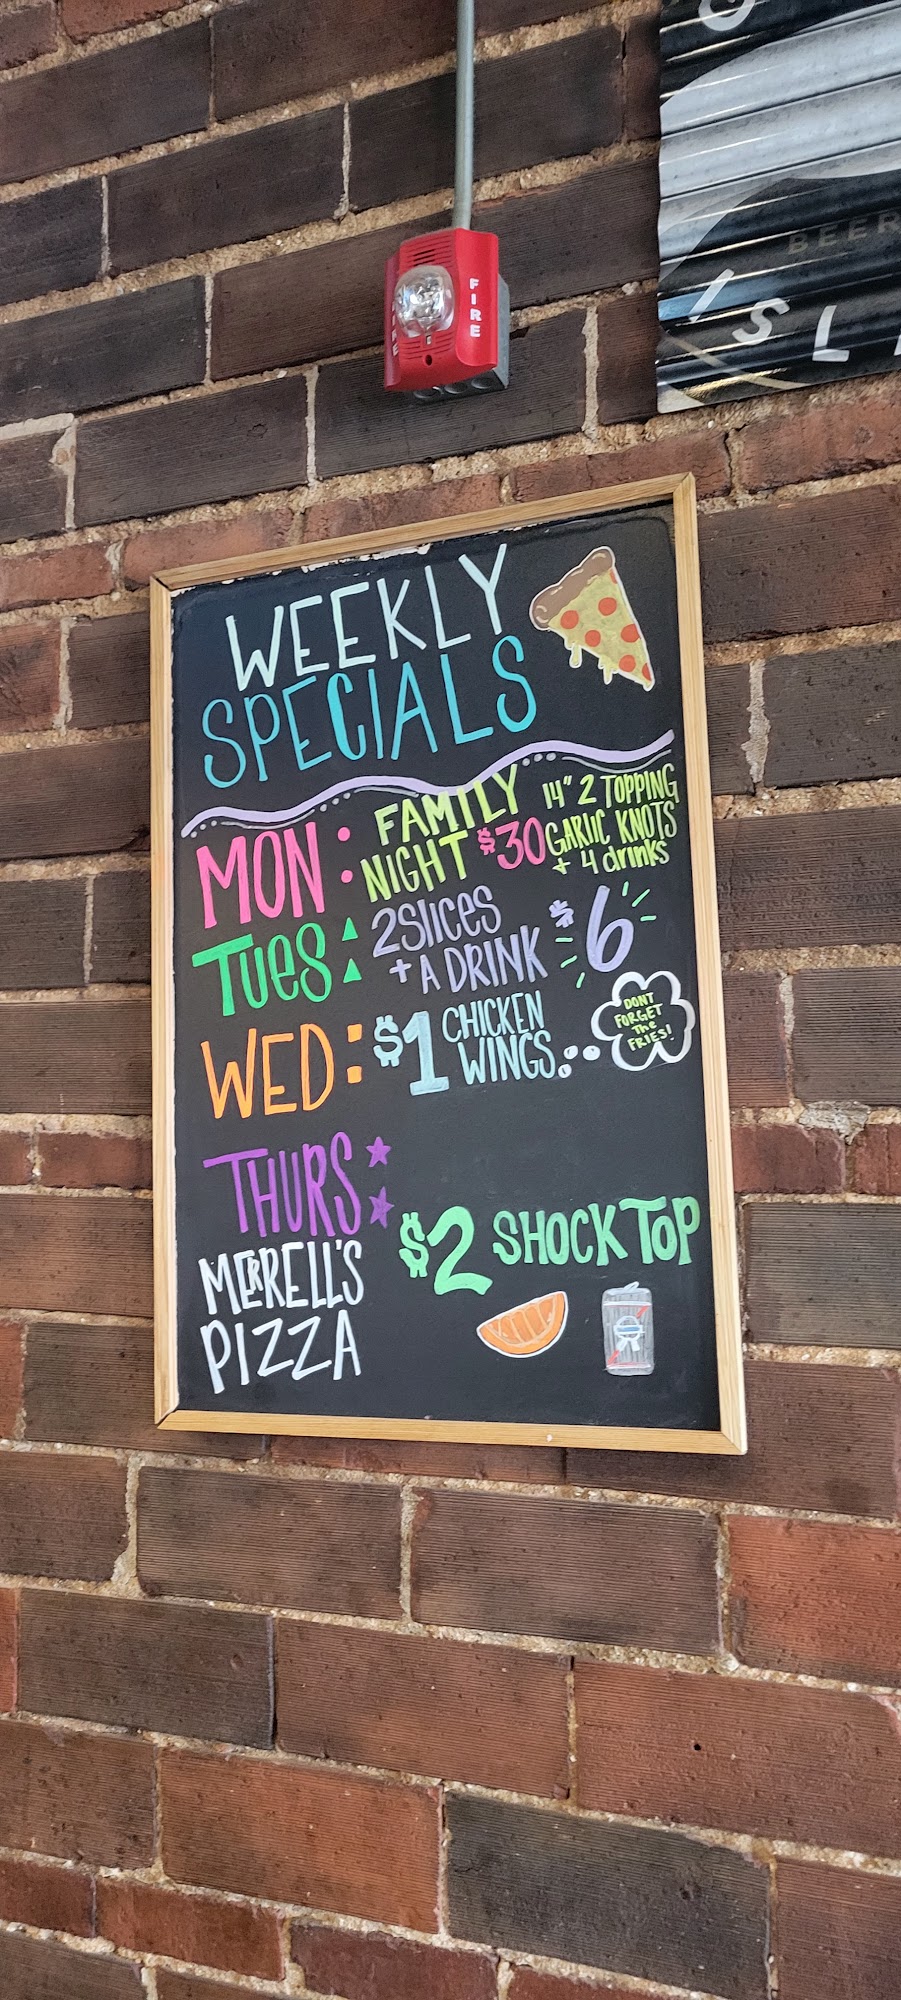 FIRE
BEER
ISL
WEEKLY
SPECIALS
MON: FAMILY NIGHT $30 14" 2 TOPPING
GARLIC KNOTS
+ 4 drinks
TUES: 2 SLICES
+ A DRINK $6
WED: $1 CHICKEN
WINGS
DONT
FORGET
THE
FRIES!
THURS:
$2 SHOCK TOP
MERRELL'S
PIZZA